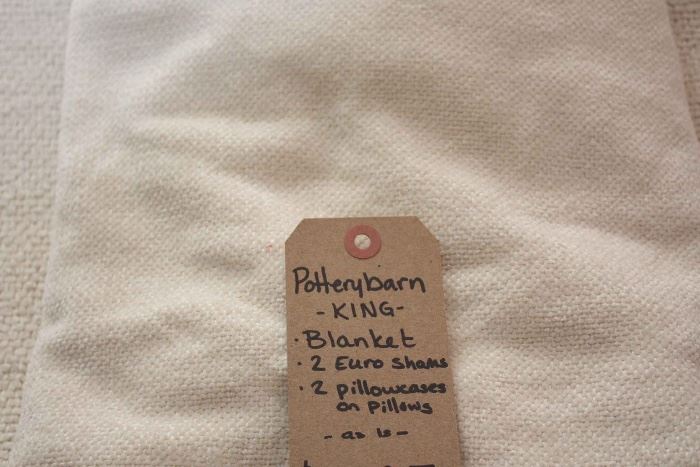 Potterybarn
- KING -
· Blanket
· 2 Euro shams
· 2 pillowcases
on pillows
- as is -